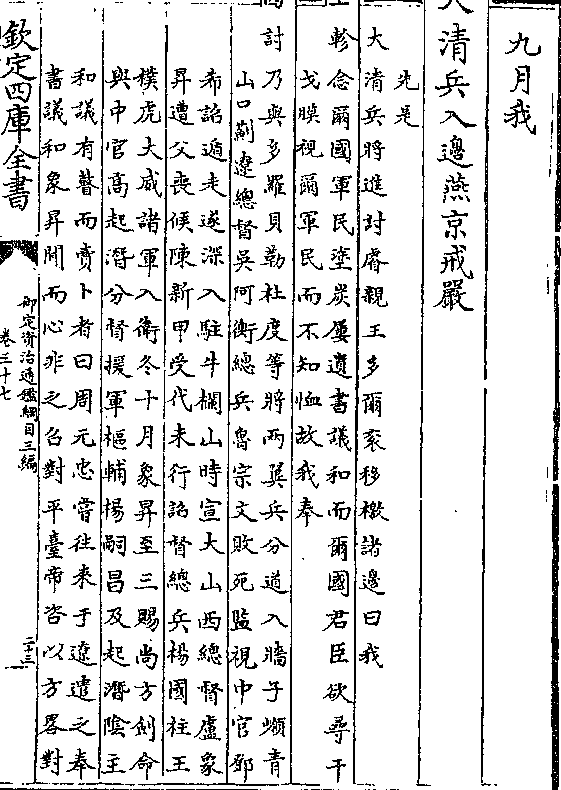 九月我
大清兵入邊燕京戒嚴
先是
大清兵將進討睿親王多爾袞移檄諸邊曰我
軫念爾國軍民塗炭屢遺書議和而爾國君臣欲尋干
戈膜視爾軍民而不知恤故我奉
討乃與多羅貝勒杜度等將兩翼兵分道入牆子嶺青
山口薊遼總督吳阿衡總兵魯宗文敗死監視中官鄧
希詔遁走遂深入駐牛欄山時宣大山西總督盧象
昇遭父喪候陳新甲受代未行詔督總兵楊國柱王
樸虎大威諸軍入衛冬十月象昇至三賜尚方劍命
與中官高起潛分督援軍樞輔楊嗣昌及起潛陰主
和議有瞽而賣卜者曰周元忠嘗往來于遼遣之奉
書議和象昇聞而心非之召對平臺帝咨以方畧對
欽定四庫全書
御定資治通鑑綱目三編
卷三十七
二十三